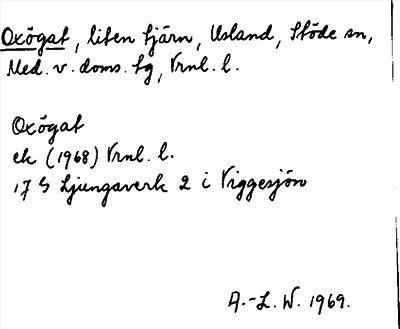 Oxögat, liten tjärn, Usland, Stöde sn,
Med. v. doms. tg, Vrnl. l.
Oxögat
ek (1968) Vrnl. l.
17 S Ljungaverk 2 i Viggesjön
A.-L. W. 1969.